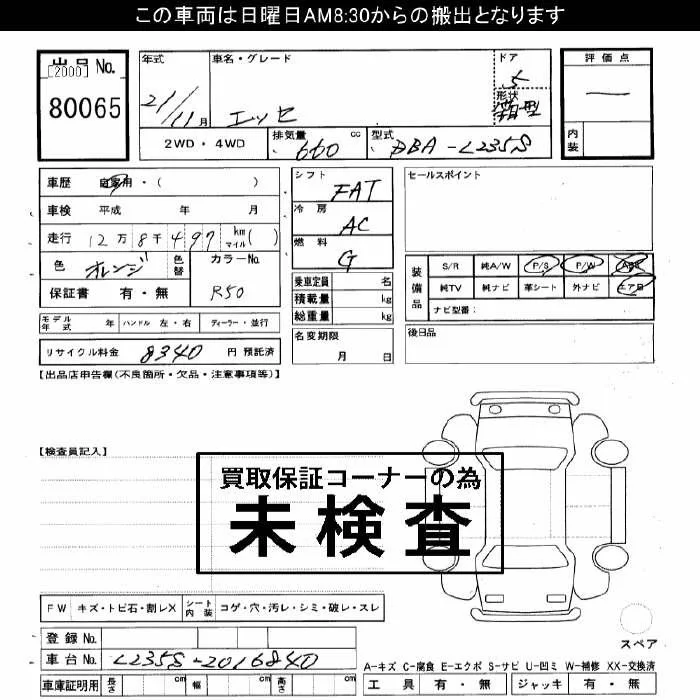 この車両は日曜日AM8:30からの搬出となります
出品No. [2000] 80065
年式 21/11月
車名・グレード エッセ
ドア 5
形状 箱型
評価点 —
内装
2WD・4WD
排気量 660 cc
型式 DBA-L235S
車歴 自家用・( )
車検 平成 年 月
走行 12万8千497 km マイル ( )
色 オレンジ 色替
カラーNo. R50
保証書 有・無
シフト FAT
冷房 AC
燃料 G
乗車定員 名
積載量 kg
総重量 kg
セールスポイント
装備品 S/R 純A/W P/S P/W ABS
純TV 純ナビ 革シート 外ナビ エアB
ナビ型番:
モデル年式 年 ハンドル 左・右 ディーラー・並行
名変期限 月 日
後日品
リサイクル料金 8340 円 預託済
【出品店申告欄(不良箇所・欠品・注意事項等)】
【検査員記入】
買取保証コーナーの為
未検査
FW キズ・トビ石・割レX シート内装 コゲ・穴・汚レ・シミ・破レ・スレ
登録No.
車台No. L235S-2016840
スペア
A-キズ C-腐食 E-エクボ S-サビ U-凹ミ W-補修 XX-交換済
車庫証明用 長さ cm 幅 cm 高さ cm
工具 有・無 ジャッキ 有・無